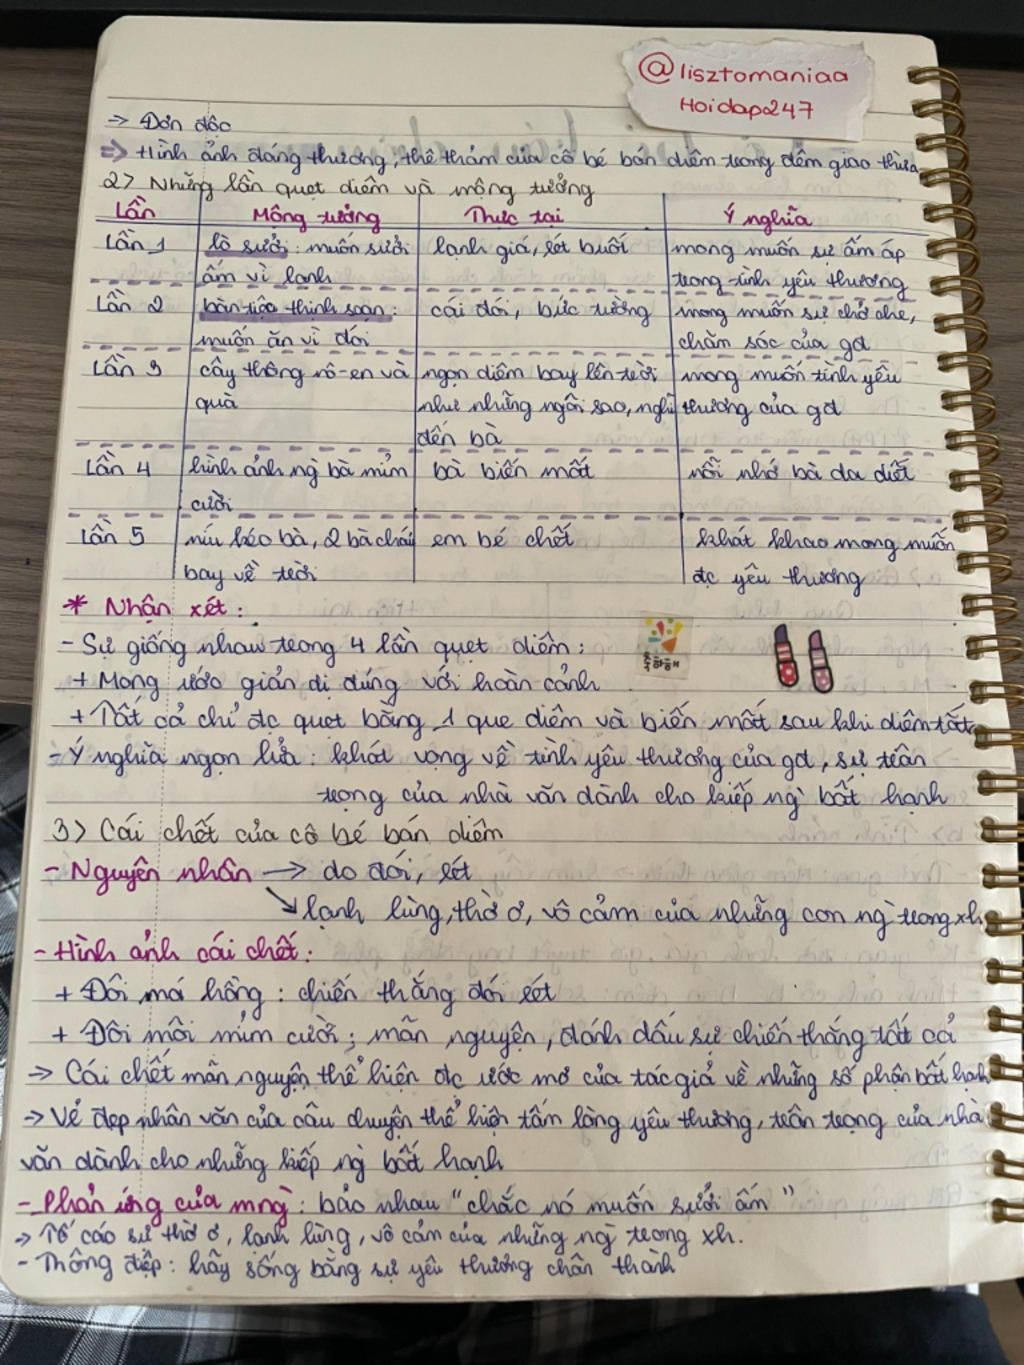 @lisztomaniaa
Hoidap247
→ Đơn độc
⇒ Hình ảnh đáng thương, thê thảm của cô bé bán diêm trong đêm giao thừa
2> Những lần quẹt diêm và mộng tưởng
Lần Mộng tưởng Thực tại Ý nghĩa
Lần 1 lò sưởi: muốn sưởi lạnh giá, rét buốt mong muốn sự ấm áp
ấm vì lạnh trong tình yêu thương
Lần 2 bàn tiệc thịnh soạn: cái đói, bức tường mong muốn sự chở che,
muốn ăn vì đói chăm sóc của gđ
Lần 3 cây thông nô-en và ngọn diêm bay lên trời mong muốn tình yêu
quà như những ngôi sao, nghĩ thương của gđ
đến bà
Lần 4 hình ảnh ng` bà mỉm bà biến mất nỗi nhớ bà da diết
cười
Lần 5 níu kéo bà, 2 bà cháu em bé chết khát khao mong muốn
bay về trời đc yêu thương
* Nhận xét:
- Sự giống nhau trong 4 lần quẹt diêm:
+ Mong ước giản dị đúng với hoàn cảnh
+ Tất cả chỉ đc quẹt bằng 1 que diêm và biến mất sau khi diêm tắt
- Ý nghĩa ngọn lửa: khát vọng về tình yêu thương của gđ, sự trân
trọng của nhà văn dành cho kiếp ng` bất hạnh
3> Cái chết của cô bé bán diêm
- Nguyên nhân → do đói, rét
↘ lạnh lùng, thờ ơ, vô cảm của những con ng` trong xh
- Hình ảnh cái chết:
+ Đôi má hồng: chiến thắng đói rét
+ Đôi môi mỉm cười: mãn nguyện, đánh dấu sự chiến thắng tất cả
→ Cái chết mãn nguyện thể hiện đc ước mơ của tác giả về những số phận bất hạnh
→ Vẻ đẹp nhân văn của câu chuyện thể hiện tấm lòng yêu thương, trân trọng của nhà
văn dành cho những kiếp ng` bất hạnh
- Phản ứng của mng`: bảo nhau "chắc nó muốn sưởi ấm"
→ Tố cáo sự thờ ơ, lạnh lùng, vô cảm của những ng` trong xh.
- Thông điệp: hãy sống bằng sự yêu thương chân thành